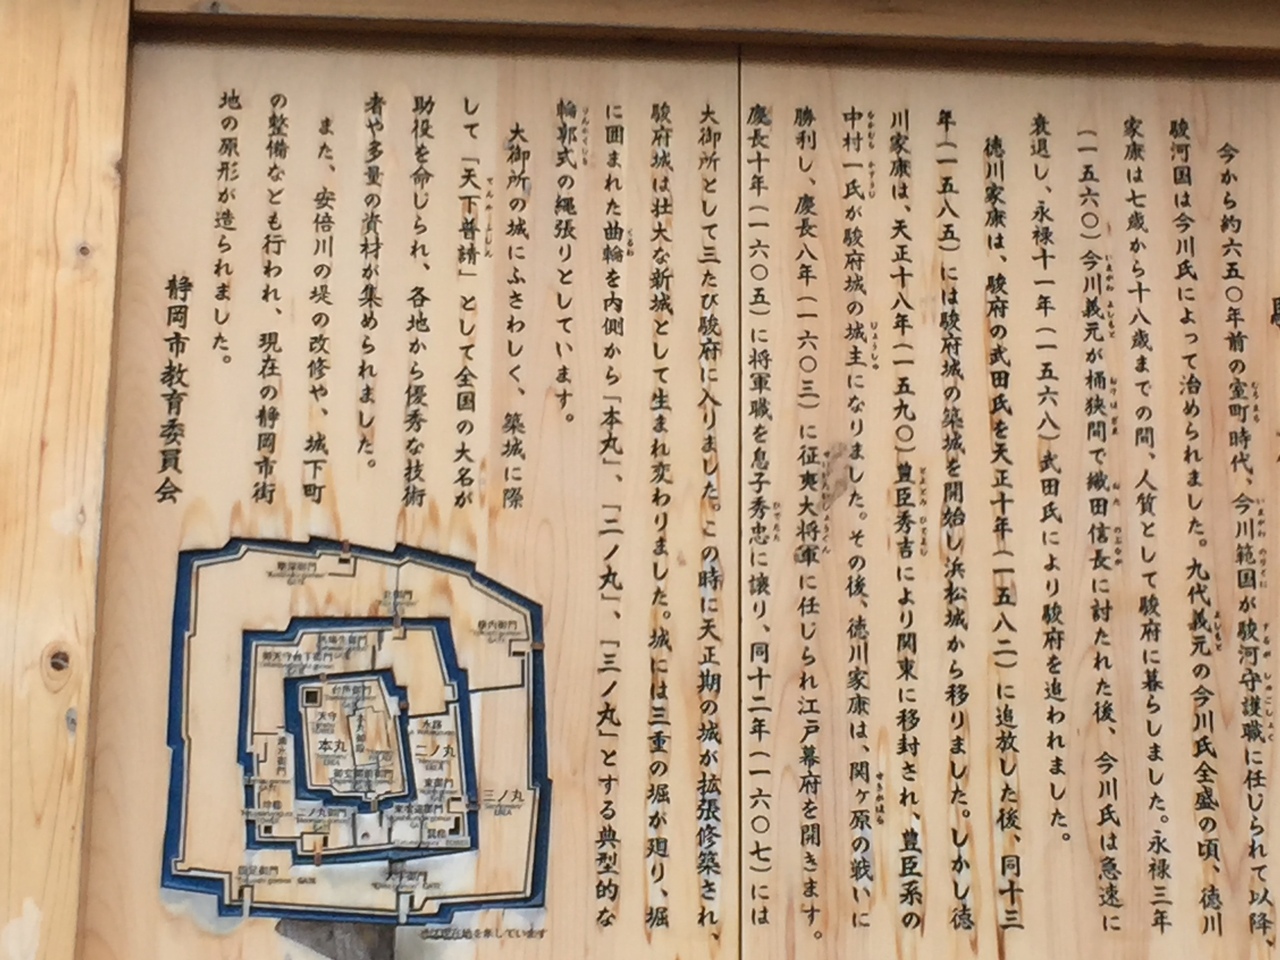 今から約六五〇年前の室町時代、今川範国が駿河守護職に任じられて以降、
駿河国は今川氏によって治められました。九代義元の今川氏全盛の頃、徳川
家康は七歳から十八歳までの間、人質として駿府に暮らしました。永禄三年
(一五六〇)今川義元が桶狭間で織田信長に討たれた後、今川氏は急速に
衰退し、永禄十一年(一五六八)武田氏により駿府を追われました。
徳川家康は、駿府の武田氏を天正十年(一五八二)に追放した後、同十三
年(一五八五)には駿府城の築城を開始し浜松城から移りました。しかし徳
川家康は、天正十八年(一五九〇)豊臣秀吉により関東に移封され、豊臣系の
中村一氏が駿府城の城主になりました。その後、徳川家康は、関ヶ原の戦いに
勝利し、慶長八年(一六〇三)に征夷大将軍に任じられ江戸幕府を開きます。
慶長十年(一六〇五)に将軍職を息子秀忠に譲り、同十二年(一六〇七)には
大御所として三たび駿府に入りました。この時に天正期の城が拡張修築され、
駿府城は壮大な新城として生まれ変わりました。城には三重の堀が廻り、堀
に囲まれた曲輪を内側から「本丸」、「二ノ丸」、「三ノ丸」とする典型的な
輪郭式の縄張りとしています。
大御所の城にふさわしく、築城に際
して「天下普請」として全国の大名が
助役を命じられ、各地から優秀な技術
者や多量の資材が集められました。
また、安倍川の堤の改修や、城下町
の整備なども行われ、現在の静岡市街
地の原形が造られました。
静岡市教育委員会
草深御門
北御門
横内御門
天守
本丸
水路
二ノ丸
東御門
三ノ丸
二ノ丸御門
大手御門